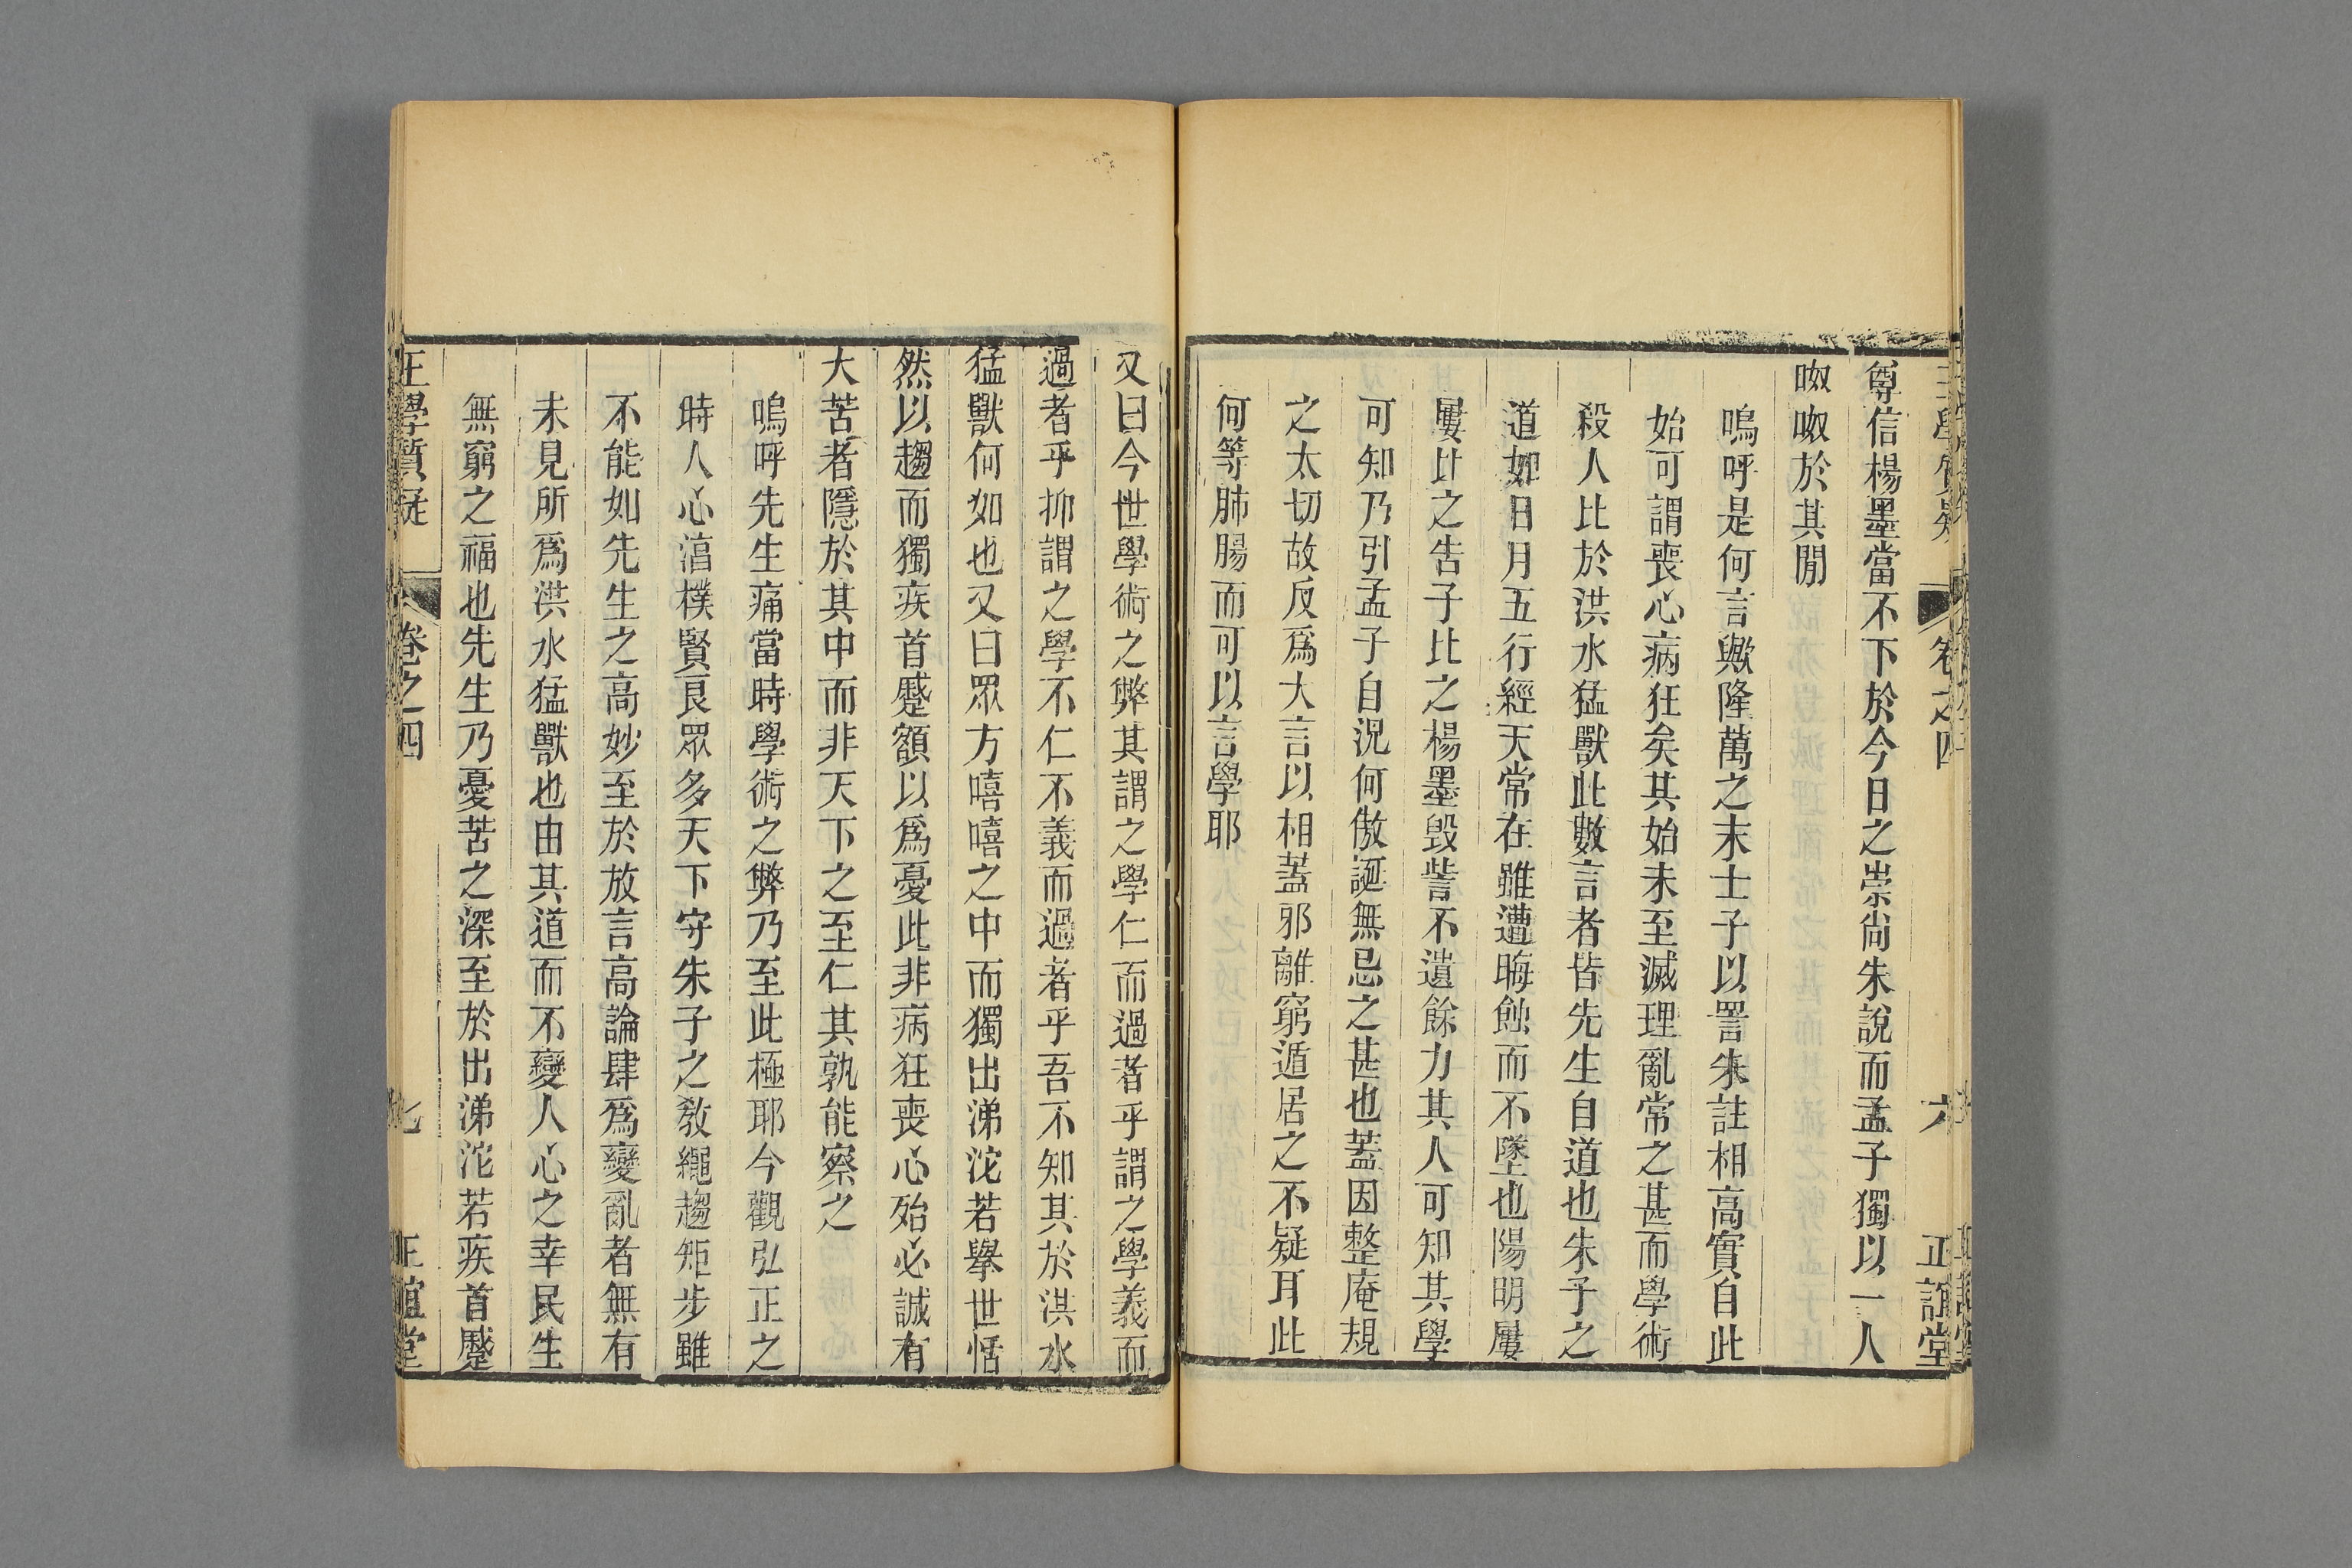 卷之四 六 正誼堂
尊信楊墨當不下於今日之崇尚朱說而孟子獨以一人
呶呶於其閒
嗚呼是何言歟隆萬之末士子以詈朱註相高實自此
始可謂喪心病狂矣其始未至滅理亂常之甚而學術
殺人比於洪水猛獸此數言者皆先生自道也朱子之
道如日月五行經天常在雖遭晦蝕而不墜也陽明屢
屢比之告子比之楊墨毀訾不遺餘力其人可知其學
可知乃引孟子自況何傲誕無忌之甚也蓋因整庵規
之太切故反爲大言以相蓋邪離窮遁居之不疑耳此
何等肺腸而可以言學耶
又曰今世學術之弊其謂之學仁而過者乎謂之學義而
過者乎抑謂之學不仁不義而過者乎吾不知其於洪水
猛獸何如也又曰眾方嘻嘻之中而獨出涕沱若舉世恬
然以趨而獨疾首蹙額以爲憂此非病狂喪心殆必誠有
大苦者隱於其中而非天下之至仁其孰能察之
嗚呼先生痛當時學術之弊乃至此極耶今觀弘正之
時人心湻樸賢良眾多天下守朱子之教繩趨矩步雖
不能如先生之高妙至於放言高論肆爲變亂者無有
未見所爲洪水猛獸也由其道而不變人心之幸民生
無窮之福也先生乃憂苦之深至於出涕沱若疾首蹙
王學質疑 卷之四 七 正誼堂